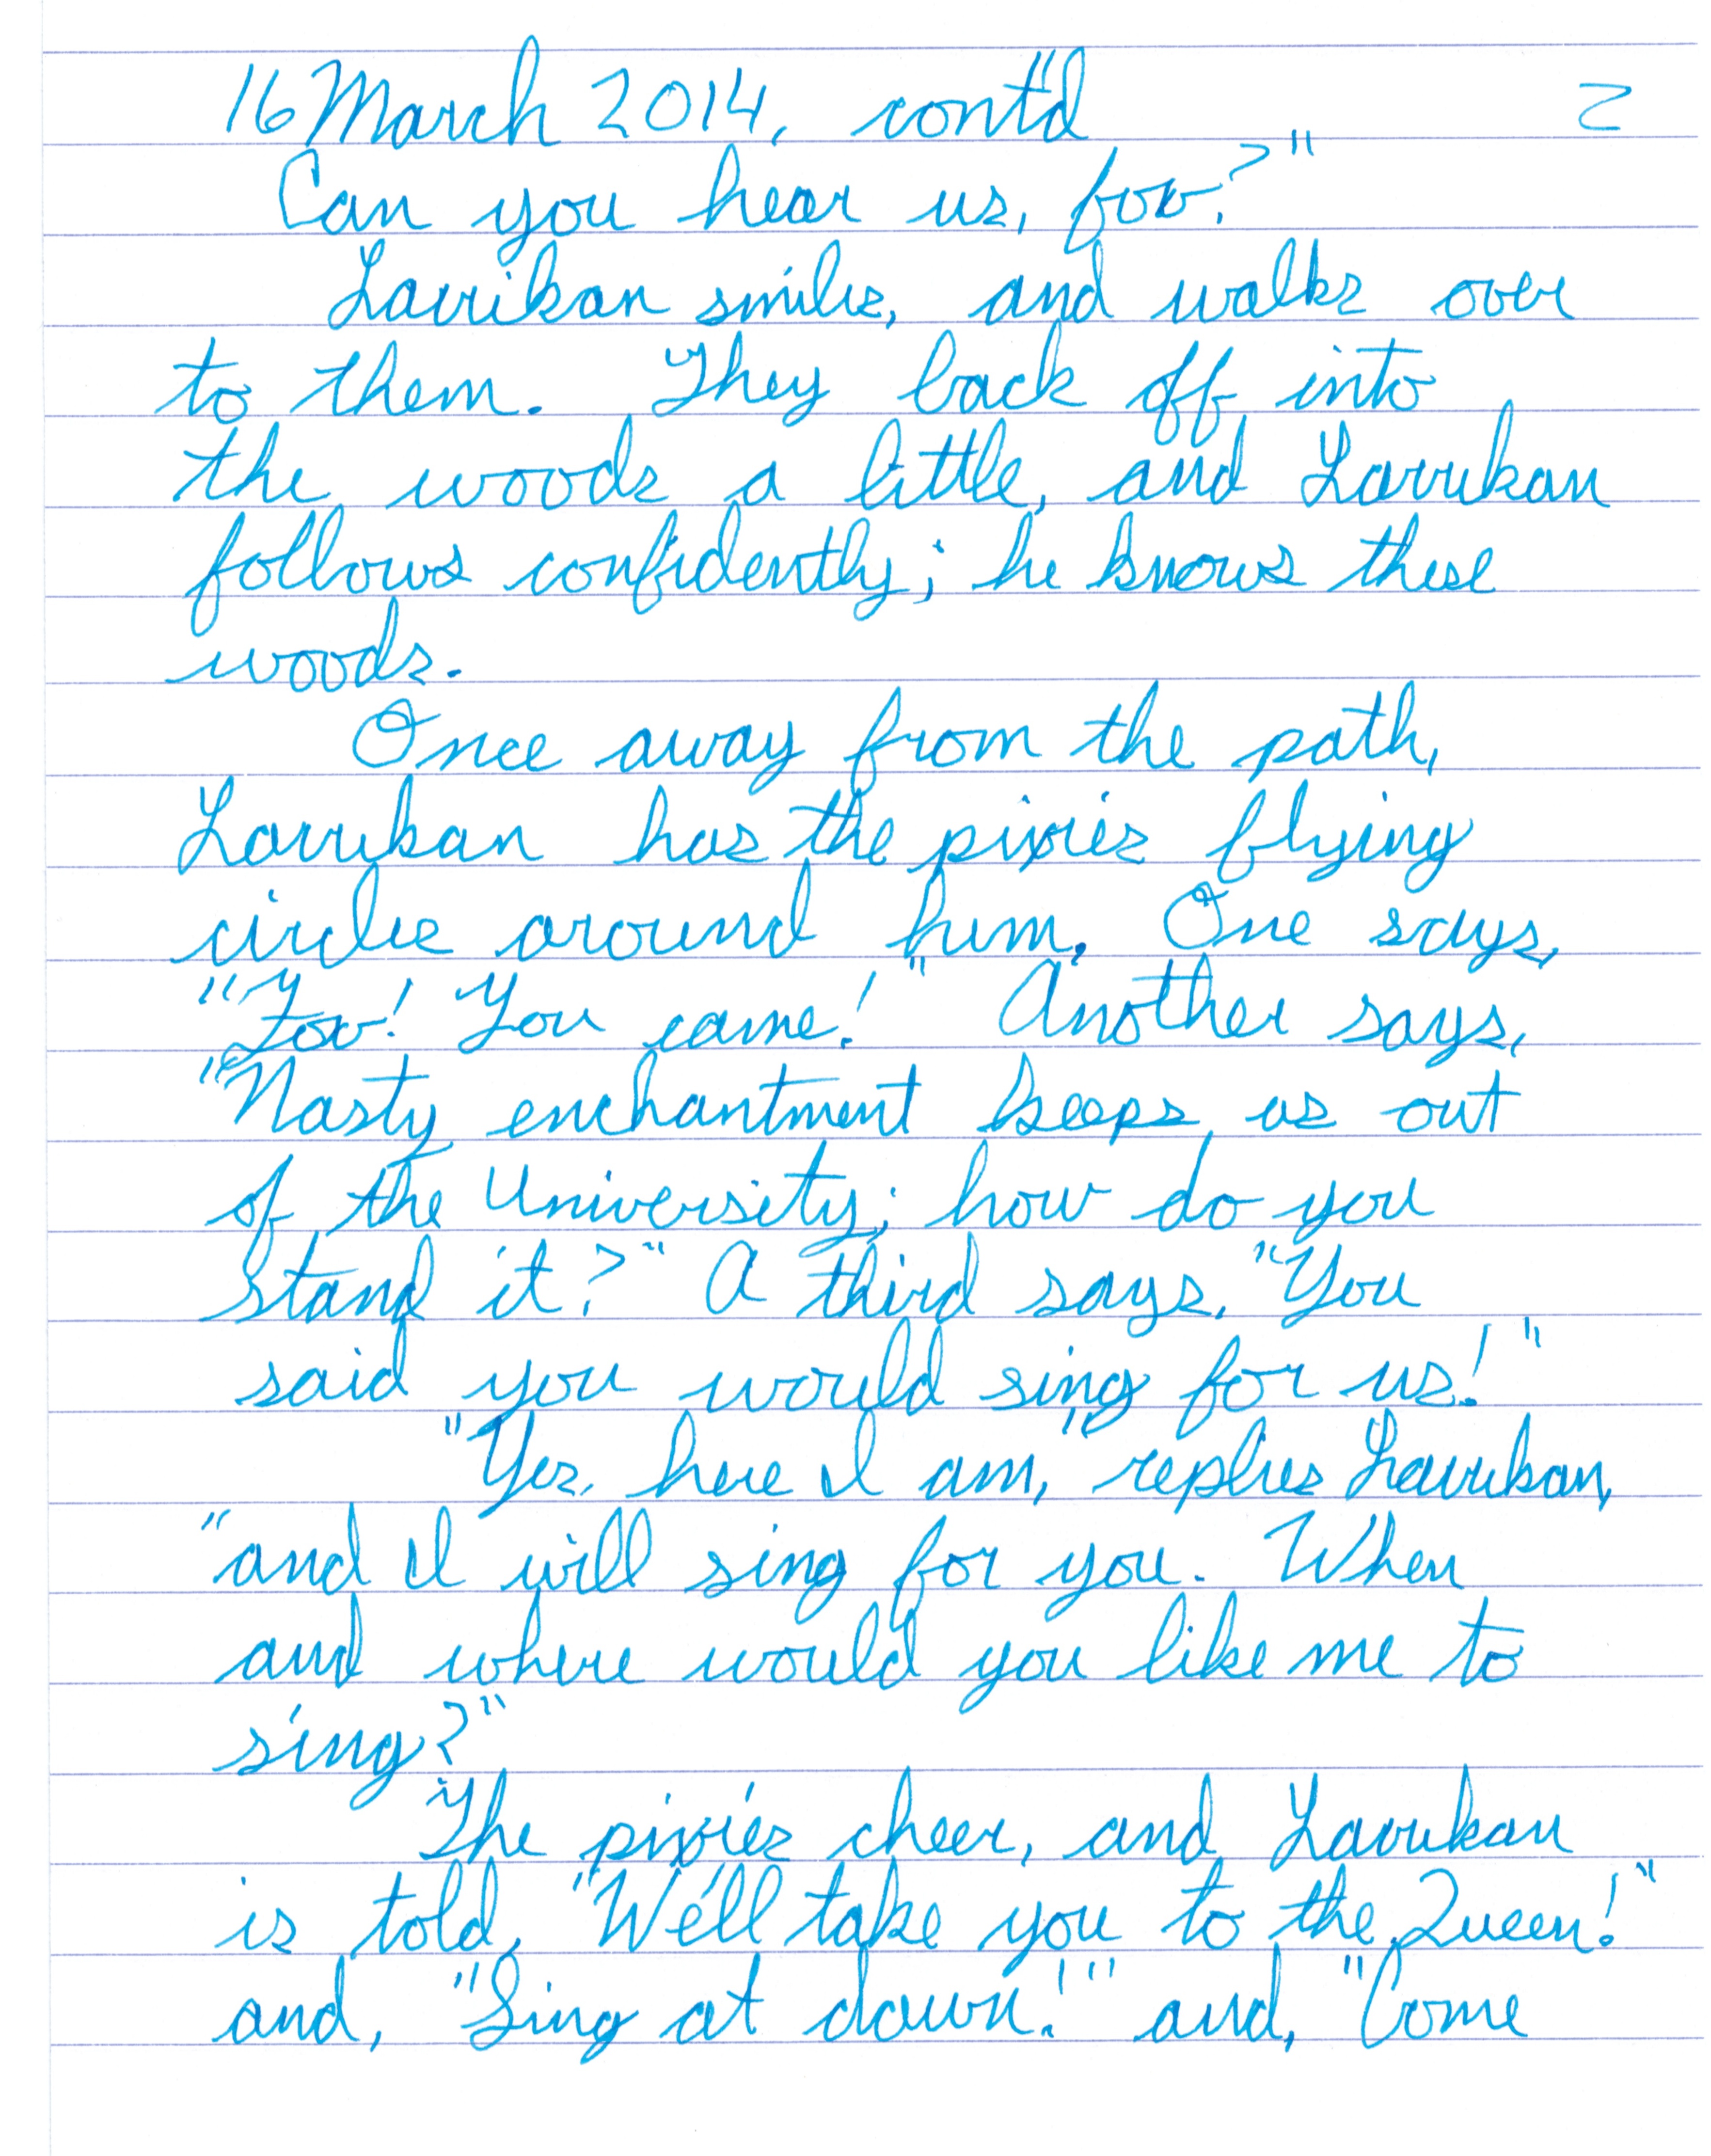 16 March 2014, cont'd 2
Can you hear us, fox?"
Larrikan smiles, and walks over
to them. They back off into
the woods a little, and Larrikan
follows confidently; he knows these
woods.
Once away from the path,
Larrikan has the pixies flying
circles around him. One says,
"Fox! You came!" Another says,
"Nasty enchantment keeps us out
of the University; how do you
stand it?" A third says, "You
said you would sing for us!"
"Yes, here I am," replies Larrikan,
"and I will sing for you. When
and where would you like me to
sing?"
The pixies cheer, and Larrikan
is told, "We'll take you to the Queen!"
and, "Sing at dawn!" and, "Come